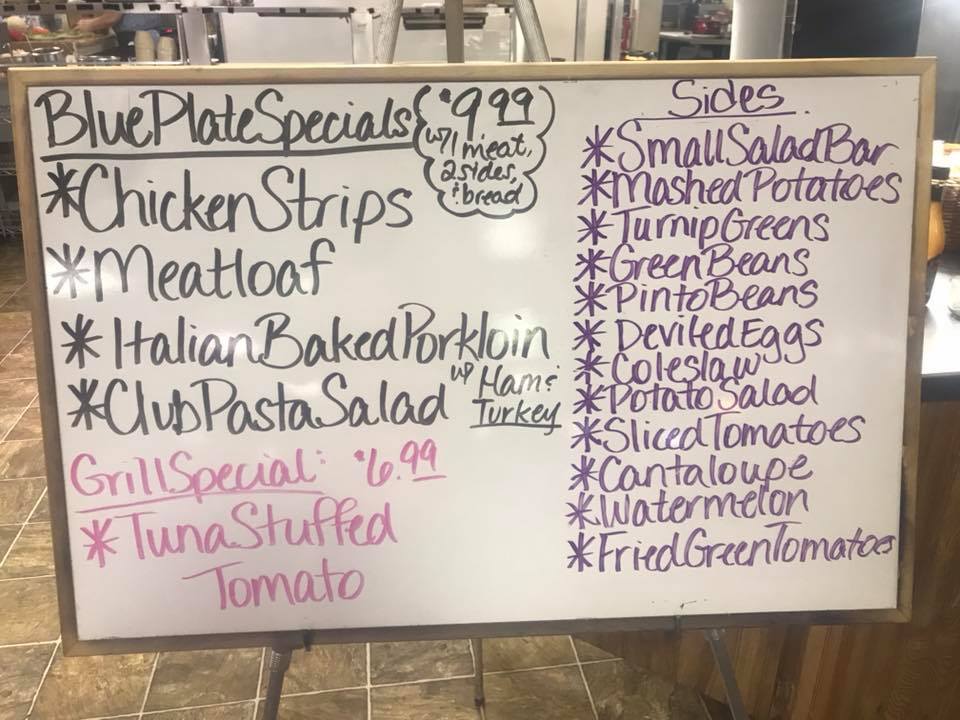 Blue Plate Specials
$9.99
w/1 meat,
2 sides,
& bread
*Chicken Strips
*Meatloaf
*Italian Baked Pork loin
*Club Pasta Salad w/ Ham &
Turkey
Grill Special: $6.99
*Tuna Stuffed
Tomato
Sides
*Small Salad Bar
*Mashed Potatoes
*Turnip Greens
*Green Beans
*Pinto Beans
*Deviled Eggs
*Coleslaw
*Potato Salad
*Sliced Tomatoes
*Cantaloupe
*Watermelon
*Fried Green Tomatoes